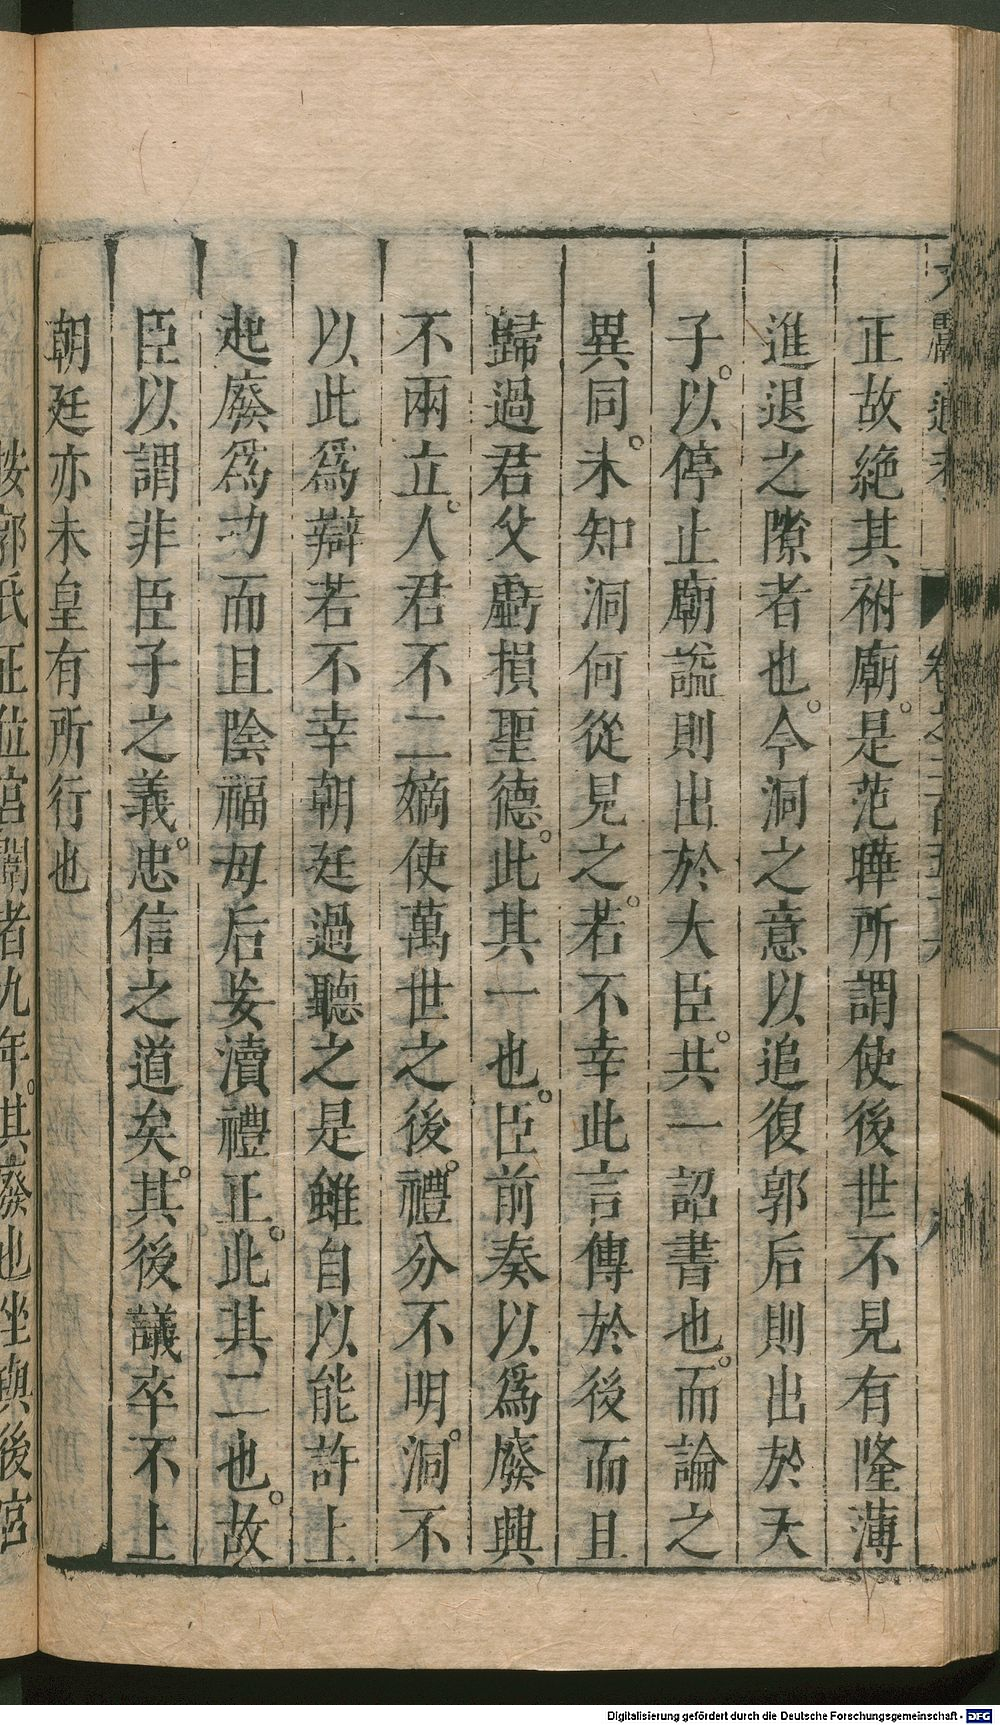 正故絶其祔廟。是范曄所謂使後世不見有隆薄
進退之隙者也。今洞之意以追復郭后則出於天
子。以停止廟謚則出於大臣。共一詔書也。而論之
異同。未知洞何從見之。若不幸此言傳於後而且
歸過君父虧損聖德。此其一也。臣前奏以爲廢興
不兩立。人君不二嫡使萬世之後。禮分不明。洞不
以此爲辯若不幸朝廷過聽之是雖自以能許上
起廢爲功而且陰福母后妾瀆禮正。此其二也。故
臣以謂非臣子之義。忠信之道矣。其後議卒不上
朝廷亦未皇有所行也
按郭氏正位宫闈者九年。其廢也坐與後宫
Digitalisierung gefördert durch die Deutsche Forschungsgemeinschaft - DFG